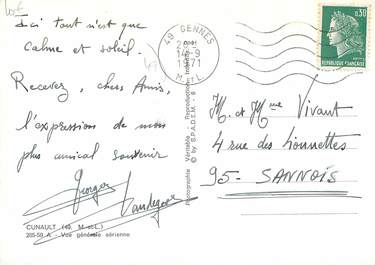 Ici tout n'est que
calme et soleil.
Recevez, chers Amis,
l'expression de mon
plus amical souvenir
Georges
CUNAULT (49. M.-et-L.)
205-59 A - Vue générale aérienne
Photographie Véritable - Reproduction Interdite
© by S.P.A.D.E.M.
49 GENNES
14-9
1971
M.-&-L.
0,30
RÉPUBLIQUE FRANÇAISE
M. et Mme Vivant
4 rue des Lionnettes
95 - SANNOIS